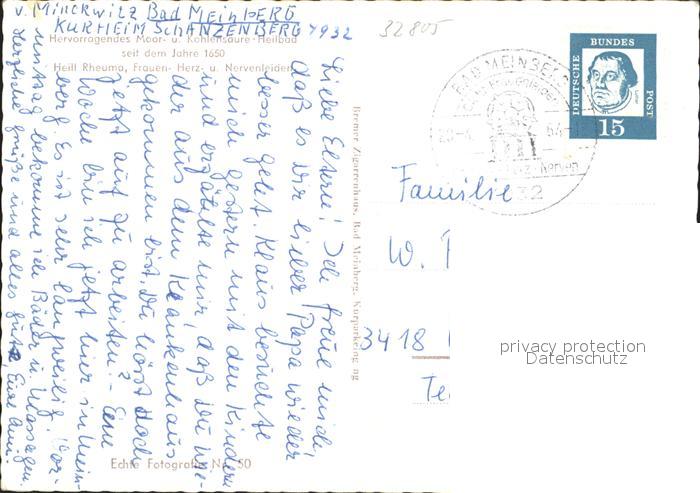 v. Minckwitz Bad MEINBERG
KURHEIM SCHANZENBERG 4932
32805
Hervorragendes Moor- u. Kohlensäure-Heilbad
seit dem Jahre 1650
Heilt Rheuma, Frauen- Herz- u. Nervenleiden
Liebe Eltern! Ich freue mich,
daß es Dir lieber Papa wieder
besser geht. Klaus besuchte
mich gestern mit den Kindern
und erzählte mir, daß Du wie-
der aus dem Krankenhaus
gekommen bist. Du hörst doch
jetzt auf zu arbeiten? - Eine
Woche bin ich jetzt hier in Mein-
berg. Es ist sehr langweilig. Vor-
mittag bekomme ich Bäder u. Massagen.
Herzliche Grüße und alles Gute Eure
Echte Fotografie Nr. 50
Bremer Zigarrenhaus, Bad Meinberg, Kurparkeingang
BAD MEINBERG
64
Nerven
32
DEUTSCHE BUNDES POST
Luther
15
Familie
W.
3418
privacy protection
Datenschutz